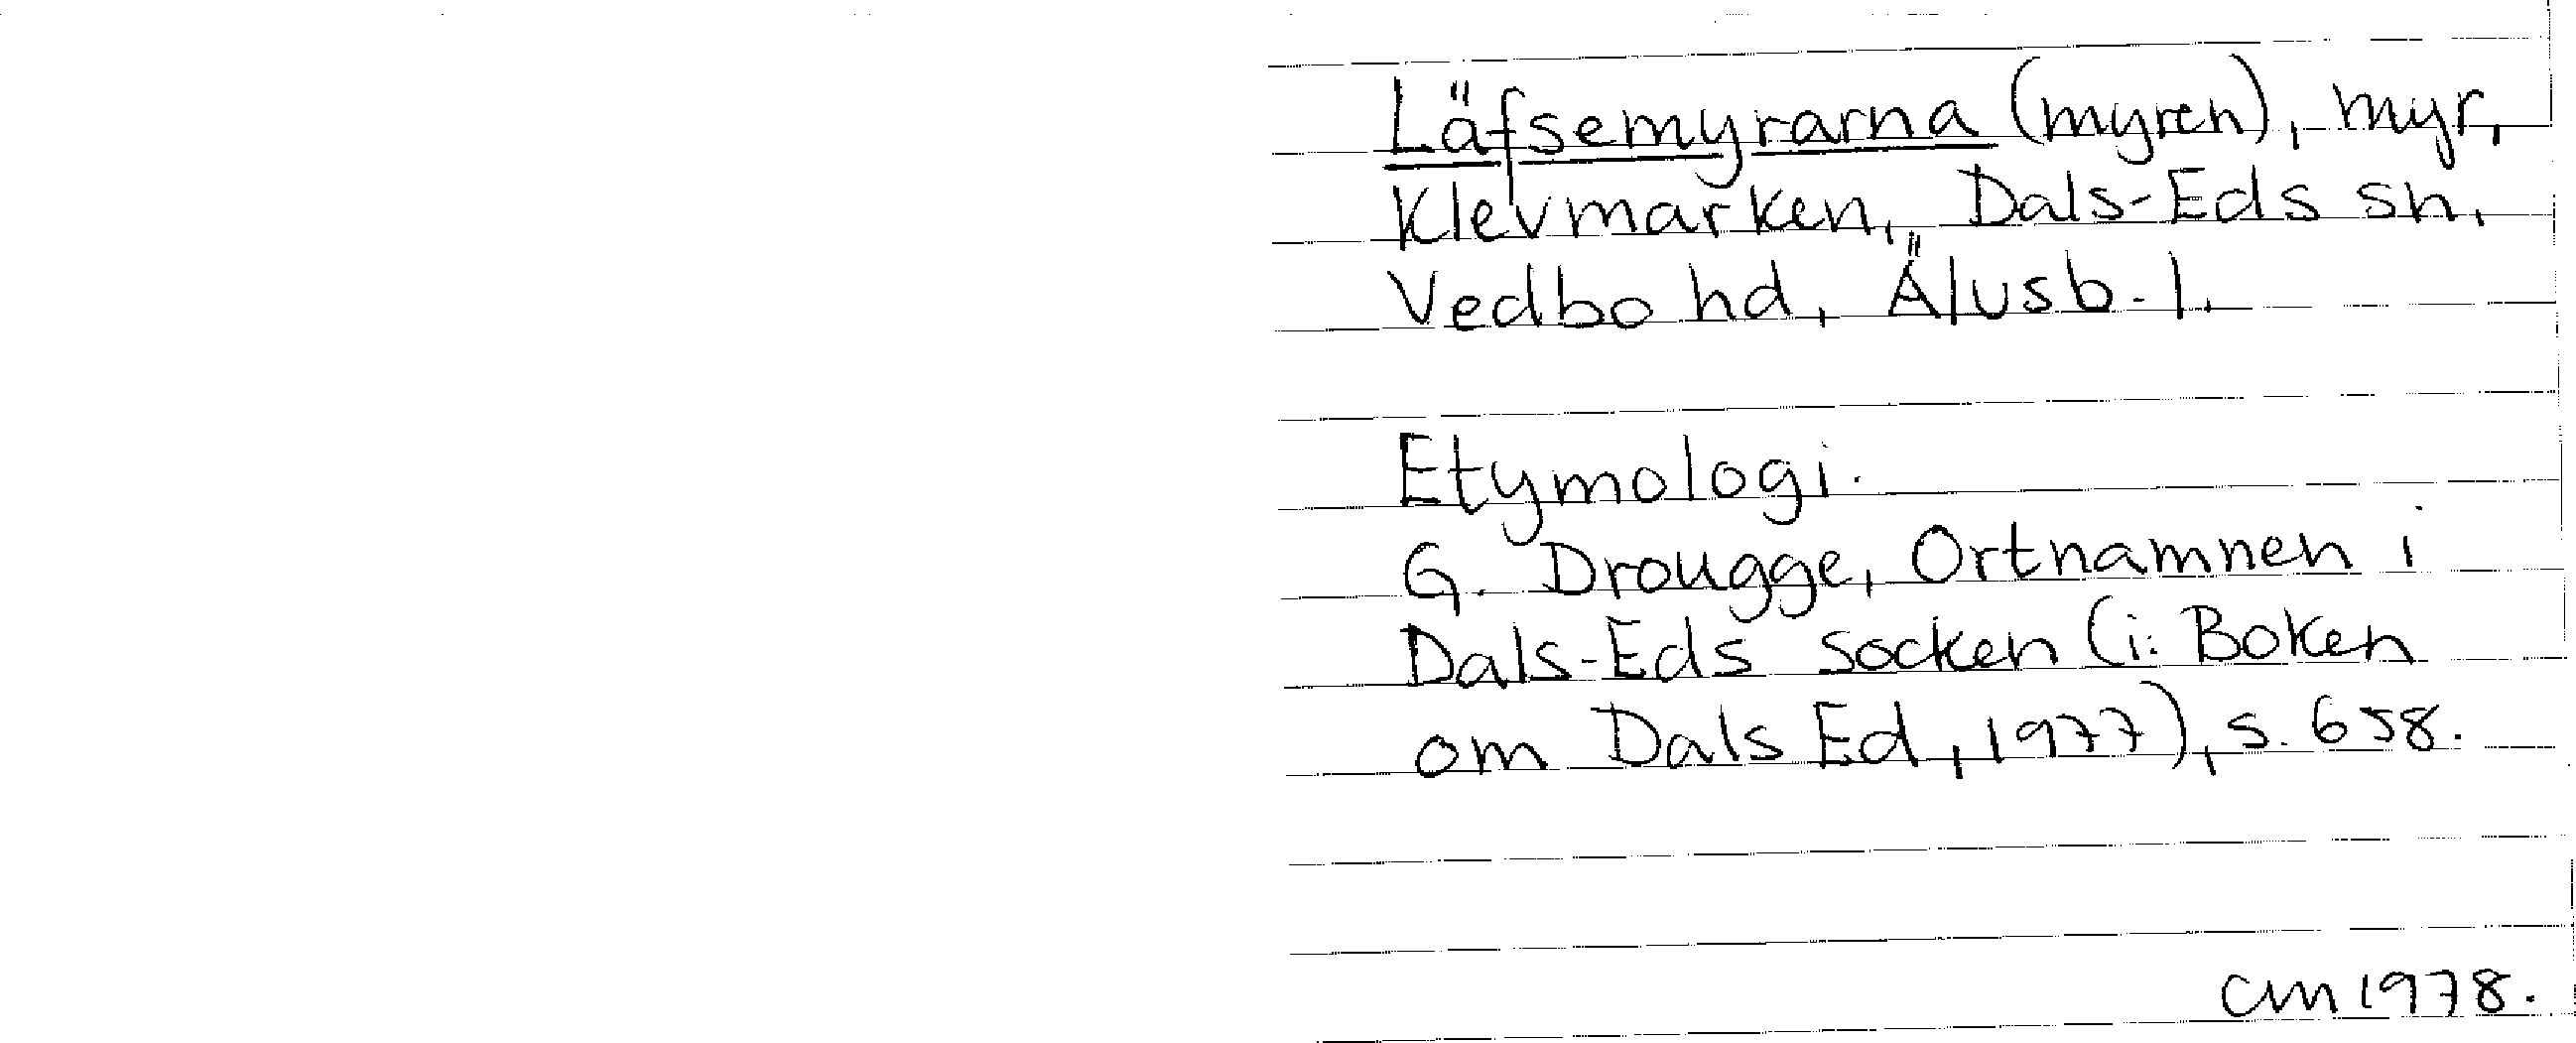 Läfsemyrarna (myren), myr,
Klevmarken, Dals-Eds sn,
Vedbo hd, Älvsb. l.
Etymologi.
G. Drougge, Ortnamnen i
Dals-Eds socken (i: Boken
om Dals Ed, 1977), s. 658.
CM 1978.